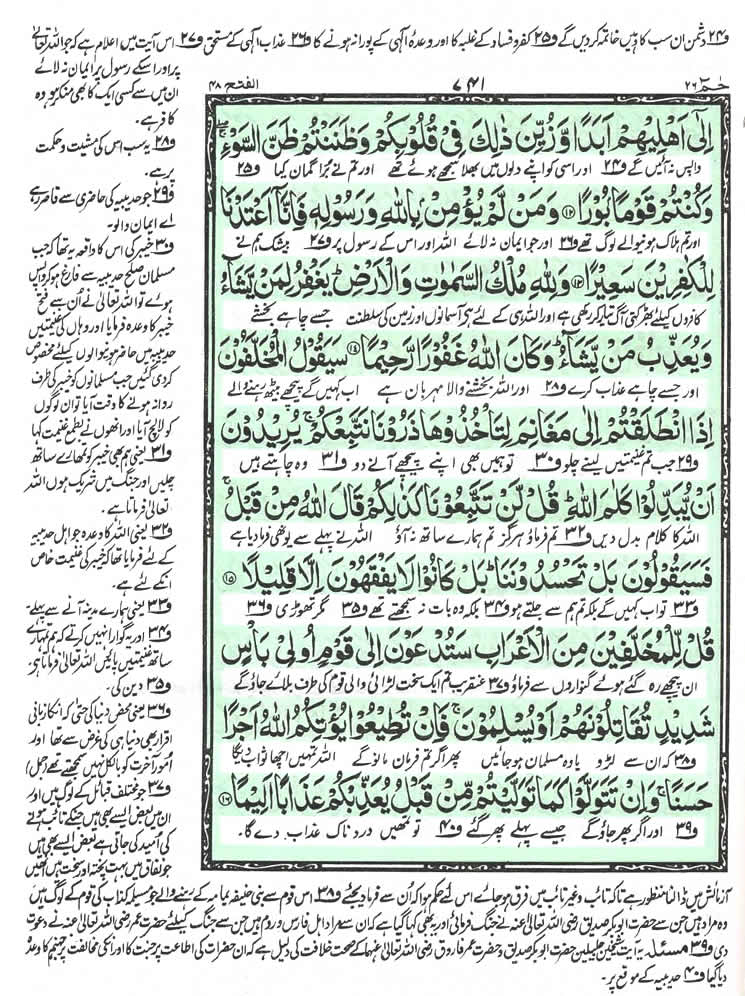 و۲۴ دشمن ان سب کا وہیں خاتمہ کردیں گے و۲۵ کفر و فساد کے غلبہ کا اور وعدۂ الٰہی کے پورا نہ ہونے کا و۲۶ عذاب الٰہی کے مستحق و۲۷ اس آیت میں اعلام ہے کہ جو اللہ تعالیٰ
پر اور اسکے رسول پر ایمان نہ لائے
ان میں سے کسی ایک کا بھی منکر ہو وہ
کافر ہے۔
و۲۸ یہ سب اس کی مشیت و حکمت
پر ہے۔
و۲۹ جو حدیبیہ کی حاضری سے قاصر رہے
اے ایمان والو۔
و۳۰ خیبر کی اس کا واقعہ یہ تھا کہ جب
مسلمان صلح حدیبیہ سے فارغ ہو کر واپس
ہوئے تو اللہ تعالیٰ نے اُن سے فتح
خیبر کا وعدہ فرمایا اور وہاں کی غنیمتیں
حدیبیہ میں حاضر ہونیوالوں کیلئے مخصوص
کردی گئیں جب مسلمانوں کو خیبر کی طرف
روانہ ہونے کا وقت آیا تو ان لوگوں
کو لالچ آیا اور انھوں نے بطمع غنیمت کہا
و۳۱ یعنی ہم بھی خیبر کو تمھارے ساتھ
چلیں اور جنگ میں شریک ہوں اللہ
تعالیٰ فرماتا ہے۔
و۳۲ یعنی اللہ کا وعدہ جو اہل حدیبیہ
کے لئے فرمایا تھا کہ خیبر کی غنیمت خاص
انکے لئے ہے۔
و۳۳ یعنی ہمارے مدینہ آنے سے پہلے۔
و۳۴ اور یہ گوارا نہیں کرتے کہ ہم تمہارے
ساتھ غنیمتیں پائیں اللہ تعالیٰ فرماتا ہے۔
و۳۵ دین کی۔
و۳۶ یعنی محض دنیا کی حتیٰ کہ انکا زبانی
اقرار بھی دنیا ہی کی غرض سے تھا اور
اُمورِ آخرت کو بالکل نہیں سمجھتے تھے (جمل)
و۳۷ جو مختلف قبائل کے لوگ ہیں اور
ان میں بعض ایسے بھی ہیں جنکے تائب ہونے
کی اُمید کی جاتی ہے بعض ایسے بھی ہیں
جو نفاق میں بہت پختہ اور سخت ہیں انھیں
حٰمٓ ۲۶
۷۴۱
الفتح ۴۸
اِلٰۤى اَهْلِیْهِمْ اَبَدًا وَّ زُیِّنَ ذٰلِكَ فِیْ قُلُوْبِكُمْ وَ ظَنَنْتُمْ ظَنَّ السَّوْءِ ۚۖ
واپس نہ آئیں گے و۲۴ اور اسی کو اپنے دلوں میں بھلا سمجھے ہوئے تھے اور تم نے بُرا گمان کیا و۲۵
وَ كُنْتُمْ قَوْمًۢا بُوْرًا ۝۱۲ وَ مَنْ لَّمْ یُؤْمِنْۢ بِاللّٰهِ وَ رَسُوْلِهٖ فَاِنَّاۤ اَعْتَدْنَا
اور تم ہلاک ہونیوالے لوگ تھے و۲۶ اور جو ایمان نہ لائے اللہ اور اس کے رسول پر و۲۷ بیشک ہم نے
لِلْكٰفِرِیْنَ سَعِیْرًا ۝۱۳ وَ لِلّٰهِ مُلْكُ السَّمٰوٰتِ وَ الْاَرْضِ ؕ یَغْفِرُ لِمَنْ یَّشَآءُ
کافروں کیلئے بھڑکتی آگ تیار کر رکھی ہے اور اللہ ہی کے لئے ہے آسمانوں اور زمین کی سلطنت جسے چاہے بخشے
وَ یُعَذِّبُ مَنْ یَّشَآءُ ؕ وَ كَانَ اللّٰهُ غَفُوْرًا رَّحِیْمًا ۝۱۴ سَیَقُوْلُ الْمُخَلَّفُوْنَ
اور جسے چاہے عذاب کرے و۲۸ اور اللہ بخشنے والا مہربان ہے اب کہیں گے پیچھے بیٹھ رہنے والے
اِذَا انْطَلَقْتُمْ اِلٰى مَغَانِمَ لِتَاْخُذُوْهَا ذَرُوْنَا نَتَّبِعْكُمْ ۚ یُرِیْدُوْنَ
و۲۹ جب تم غنیمتیں لینے چلو و۳۰ تو ہمیں بھی اپنے پیچھے آنے دو و۳۱ وہ چاہتے ہیں
اَنْ یُّبَدِّلُوْا كَلٰمَ اللّٰهِ ؕ قُلْ لَّنْ تَتَّبِعُوْنَا كَذٰلِكُمْ قَالَ اللّٰهُ مِنْ قَبْلُ ۚ
اللہ کا کلام بدل دیں و۳۲ تم فرماؤ ہرگز تم ہمارے ساتھ نہ آؤ اللہ نے پہلے سے یونہی فرما دیا ہے
فَسَیَقُوْلُوْنَ بَلْ تَحْسُدُوْنَنَا ؕ بَلْ كَانُوْا لَا یَفْقَهُوْنَ اِلَّا قَلِیْلًا ۝۱۵
و۳۳ تو اب کہیں گے بلکہ تم ہم سے جلتے ہو و۳۴ بلکہ وہ بات نہ سمجھتے تھے و۳۵ مگر تھوڑی و۳۶
قُلْ لِّلْمُخَلَّفِیْنَ مِنَ الْاَعْرَابِ سَتُدْعَوْنَ اِلٰى قَوْمٍ اُولِیْ بَاْسٍ
ان پیچھے رہ گئے ہوئے گنواروں سے فرماؤ و۳۷ عنقریب تم ایک سخت لڑائی والی قوم کی طرف بلائے جاؤ گے
شَدِیْدٍ تُقَاتِلُوْنَهُمْ اَوْ یُسْلِمُوْنَ ۚ فَاِنْ تُطِیْعُوْا یُؤْتِكُمُ اللّٰهُ اَجْرًا
و۳۸ کہ ان سے لڑو یا وہ مسلمان ہو جائیں پھر اگر تم فرمان مانو گے اللہ تمہیں اچھا ثواب دیگا
حَسَنًا ۚ وَ اِنْ تَتَوَلَّوْا كَمَا تَوَلَّیْتُمْ مِّنْ قَبْلُ یُعَذِّبْكُمْ عَذَابًا اَلِیْمًا ۝۱۶
و۳۹ اور اگر پھر جاؤ گے جیسے پہلے پھر گئے و۴۰ تو تمھیں دردناک عذاب دے گا۔
آزمائش میں ڈالنا منظور ہے تاکہ تائب و غیر تائب میں فرق ہو جائے اس لئے حکم ہوا کہ اُن سے فرما دیجئے و۳۸ اس قوم سے بنی حنیفہ یمامہ کے رہنے والے جو مسیلمہ کذاب کی قوم کے لوگ ہیں
وہ مراد ہیں جن سے حضرت ابوبکر صدیق رضی اللہ تعالیٰ عنہ نے جنگ فرمائی اور یہ بھی کہا گیا ہے کہ ان سے مراد اہل فارس و روم ہیں جن سے جنگ کیلئے حضرت عمر رضی اللہ تعالیٰ عنہ نے دعوت
دی و۳۹ مسئلہ یہ آیت شیخین جلیلین حضرت ابوبکر صدیق و حضرت عمر فاروق رضی اللہ تعالیٰ عنہما کے صحت خلافت کی دلیل ہے کہ ان حضرات کی اطاعت پر جنت کا اور انکی مخالفت پر جہنم کا وعدہ
دیا گیا و۴۰ حدیبیہ کے موقع پر۔